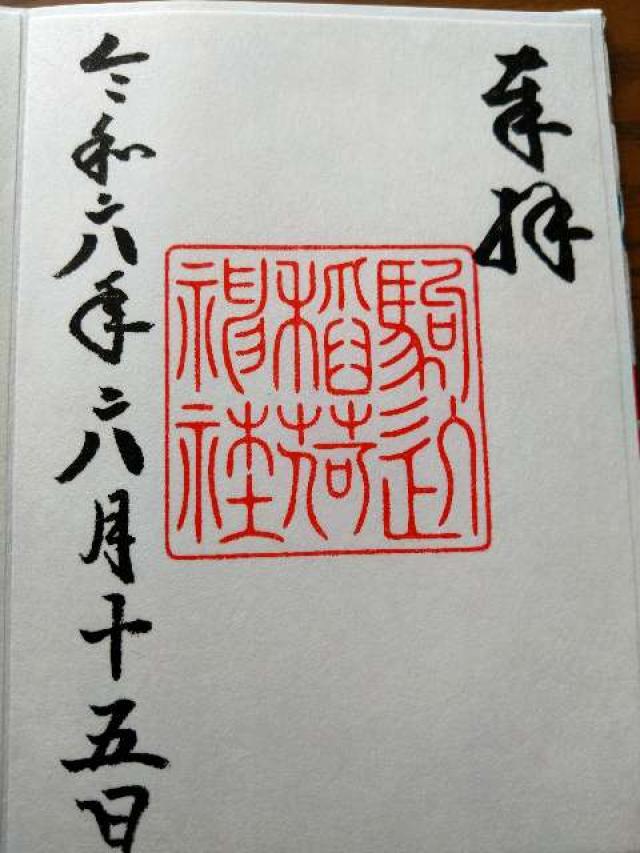 奉拝
駒込
稲荷
神社
令和六年六月十五日